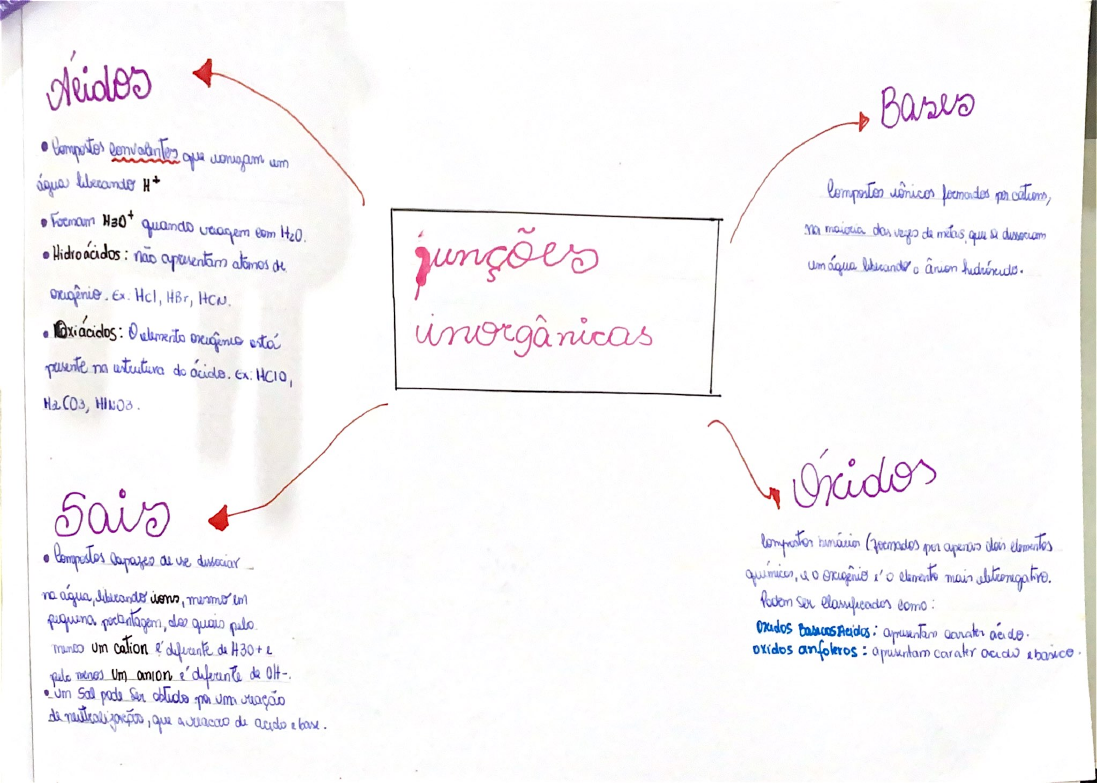 Ácidos
• Compostos convalentes que ionizam em
água liberando H+
• Formam H3O+ quando reagem com H2O.
• Hidroácidos: não apresentam atomos de
oxigênio. Ex: HCl, HBr, HCN.
• Oxiácidos: O elemento oxigênio está
presente na estrutura do ácido. Ex: HClO,
H2CO3, HNO3.
Bases
Compostos iônicos formados por cátions,
na maioria das vezes de metas, que se dissociam
em água liberando o ânion hidróxido.
funções
inorgânicas
Sais
• Compostos capazes de se dissociar
na água, liberando íons, mesmo em
pequena porcentagem, dos quais pelo
menos um cation é diferente de H3O+ e
pelo menos um anion é diferente de OH-.
• Um Sal pode Ser obtido por uma reação
de neutralização, que a reacao de acido e base.
Óxidos
Compostos binários (formados por apenas dois elementos
químicos, e o oxigênio é o elemento mais eletronegativo.
Podem Ser classificados como:
Oxidos Basicos Acidos: apresentam carater ácido.
oxidos anfoteros: apresentam carater acido e basico.